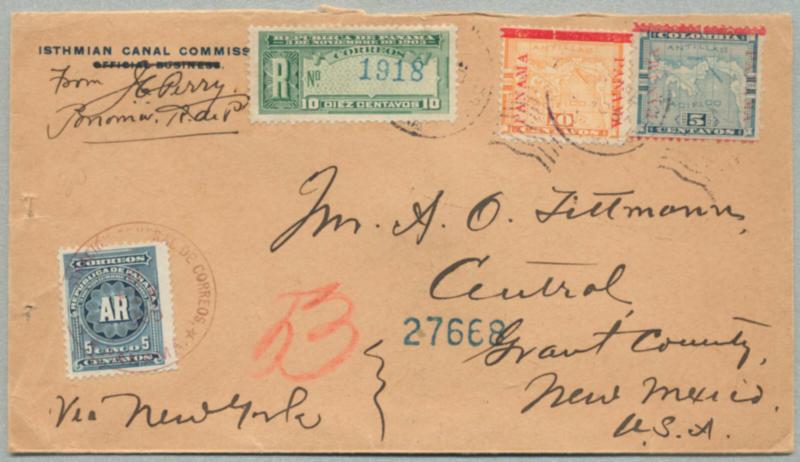 ISTHMIAN CANAL COMMISS
OFFICIAL BUSINESS.
From J C Perry.
Panama. R. de P.
REPUBLICA DE PANAMA
3 DE NOVIEMBRE DE 1903
CORREOS
R No 1918
10 DIEZ CENTAVOS 10
ANTILLAS
PANAMA
PANAMA
10
CENTAVOS
COLOMBIA
ANTILLAS
PANAMA
PANAMA
PACIFICO
5
CENTAVOS
Mr. A. O. Tittmann,
Central,
27668
Grant County,
New Mexico.
U.S.A.
53
DE CORREOS
CORREOS
REPUBLICA DE PANAMA
AR
5 CINCO 5
CENTAVOS
Via New York